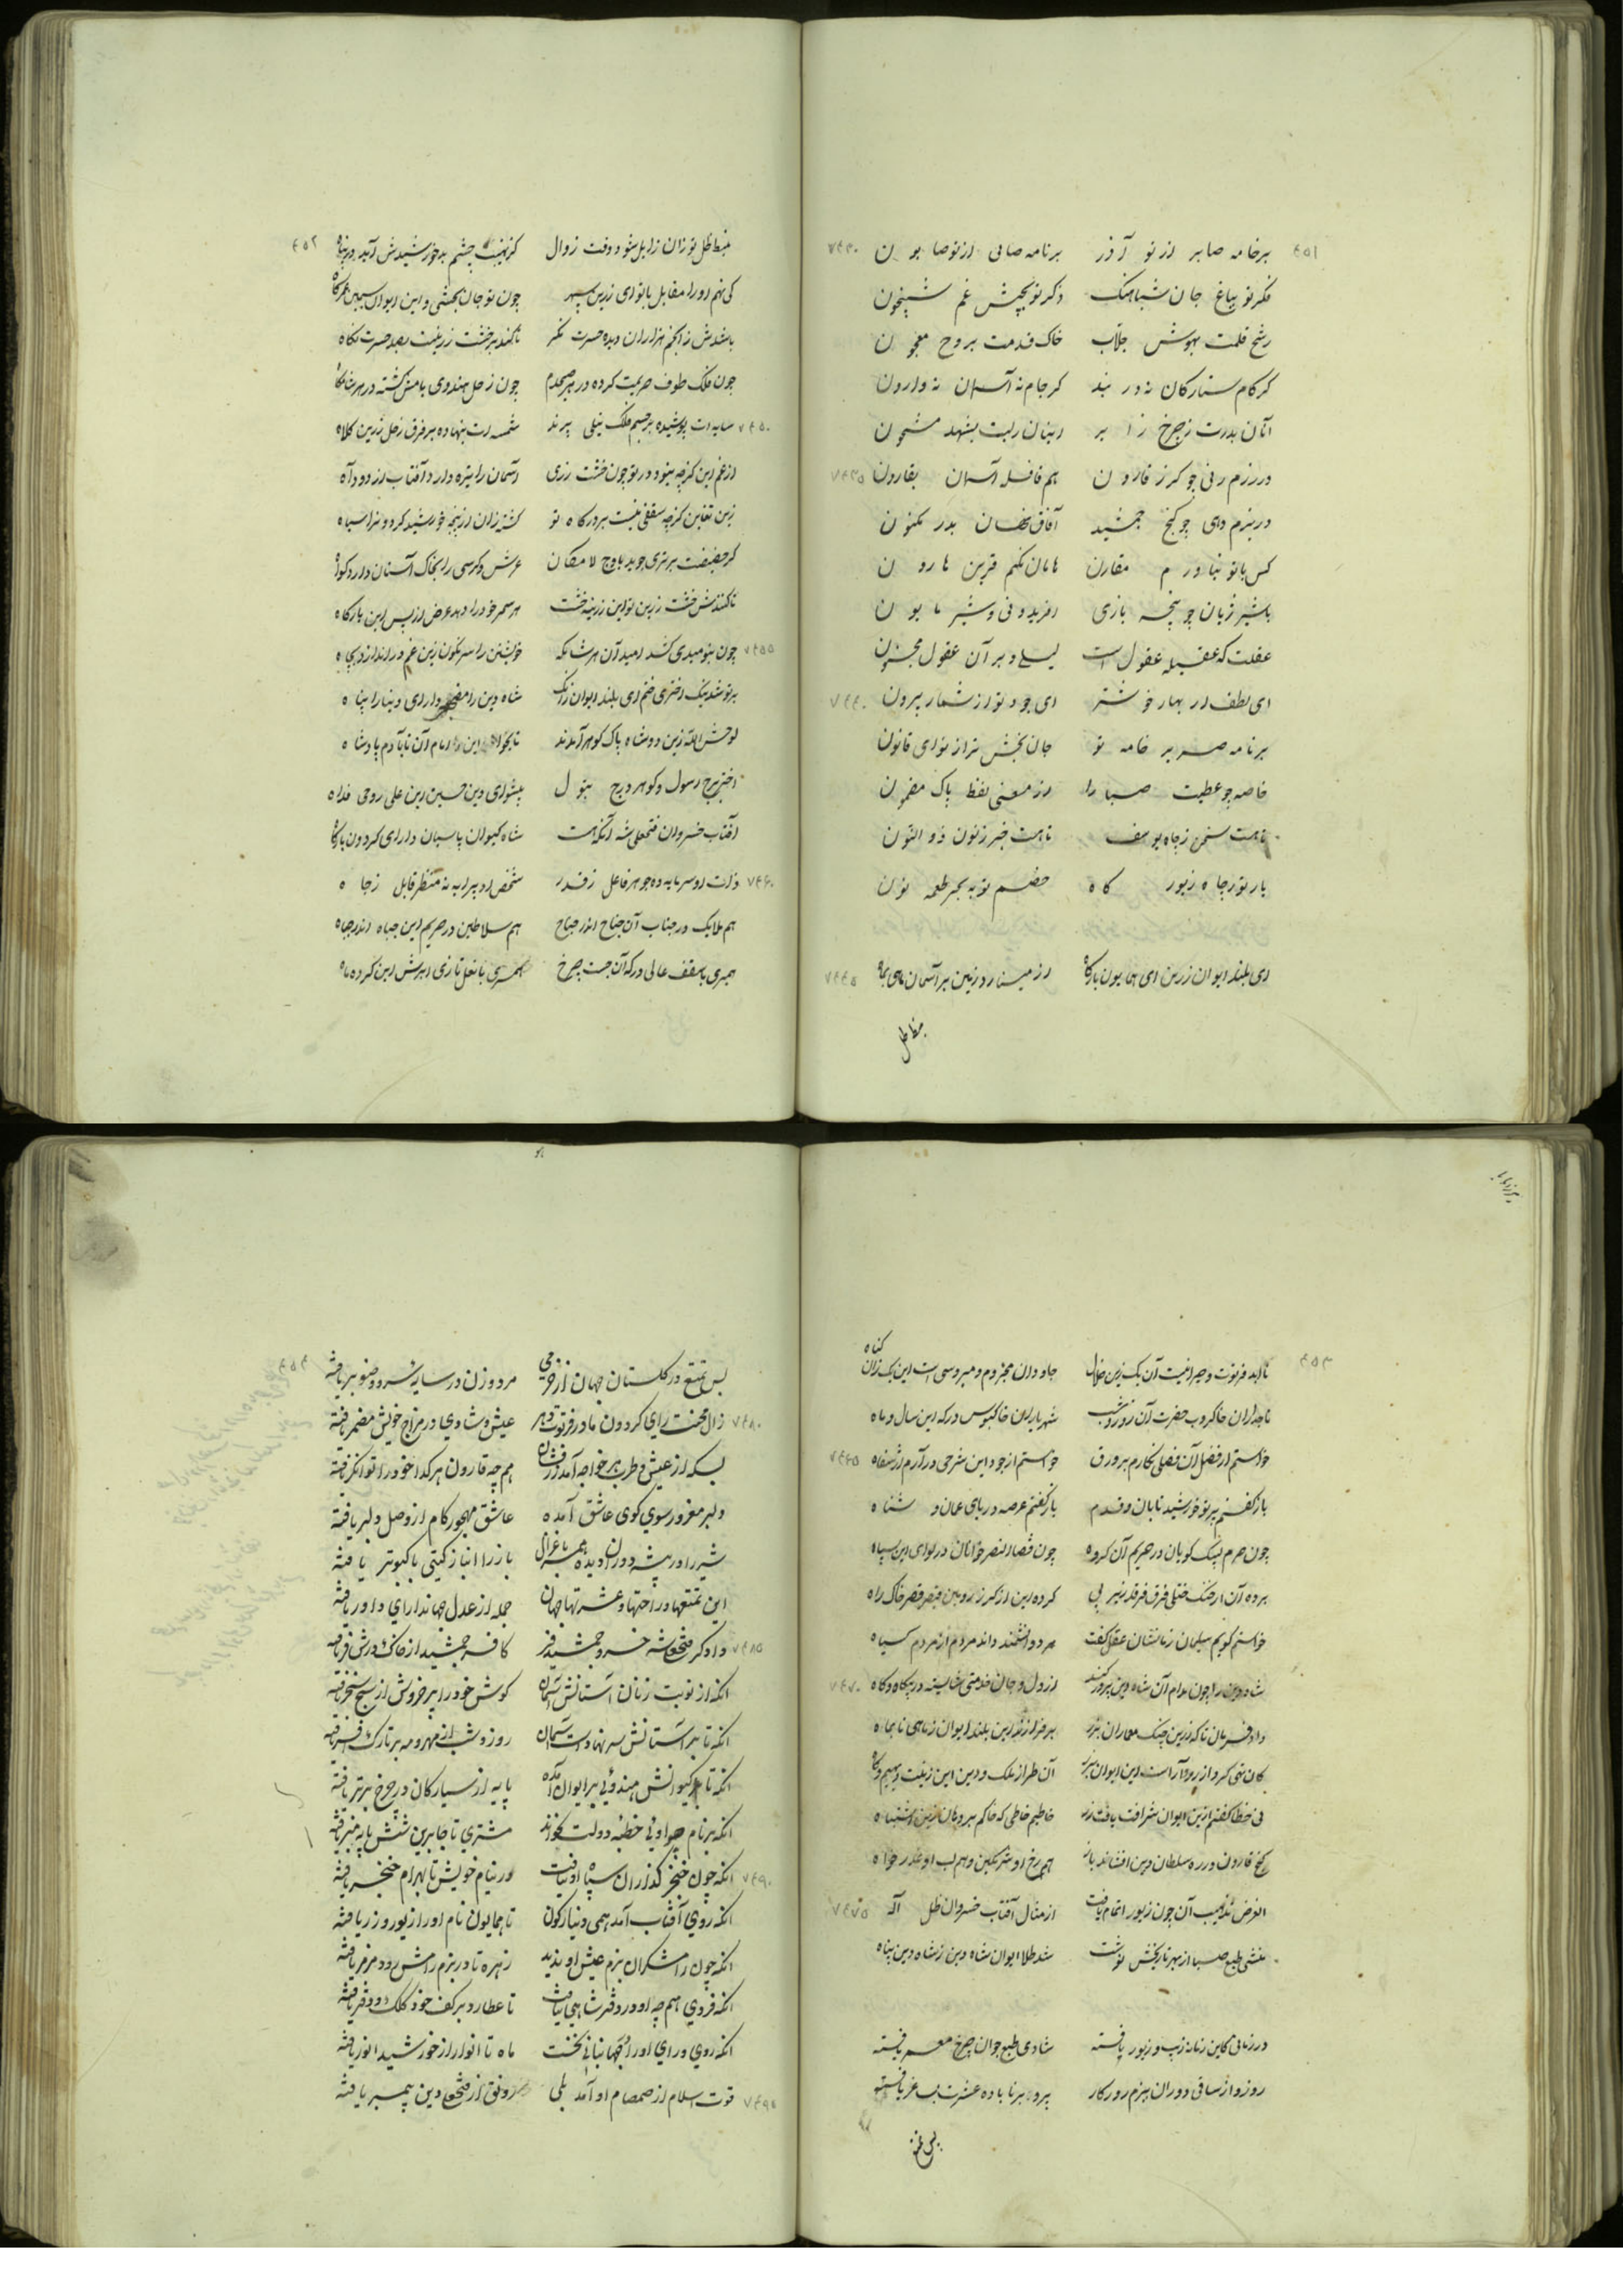 ۴۵۱
بر خامه صابر از تو آذر برنامه صابی از تو صابون
۷۴۳۰
فکر تو بباغ جان شباهنگ ذکر تو بجیش غم شبیخون
رشح قلمت بهوش جلاب خاک قدمت بروح معجون
کر کام ستارکان نه در بند کر جام نه آسمان نه وارون
آنان بدرت ز چرخ زایر اینان ربت بشهد مشحون
در رزم رنی چو کرز قارون هم قافله آسمان بقارون
۷۴۳۵
در بزم دهی چو کنج جمشید آفاق نهان بدر مکنون
کس با تو نیاورم مقارن هامان نکنم قرین هارون
با شیر ژیان چو پنجه بازی افریدونی و شیر مابون
عقلت که عقیله عقول است لیلی و بر آن عقول مجنون
ای لطف از بهار خوشتر ای جود تو از شمار بیرون
۷۴۴۰
برنامه صریر خامه تو جان بخش تر از نوای قانون
خاصه چو عطیت صبا را از معنی لفظ پاک مضمون
تا هست سخن ز چاه یوسف تا هست خبر ز نون ذوالنون
یار تو ز جاه زیور گاه خصم تو به بحر طعمه نون
ای بلند ایوان زرین ای همایون بارکاه از مینا رد زمین بر آسمان مای بماه
۷۴۴۵
۴۵۲
منبط ظل تو زان زایل بنود وقت زوال کز نهیب چشم بد خورشیدش آید در پناه
کی نهم او را مقابل با تو ای زرین سپهر چون تو جان بخشی و این ایوان سیمین عمر کاه
باشدش ز انجم هزاران دیده حسرت نگر تا کند بر خشت زرینت بصد حسرت نگاه
چون فلک طوف حریمت کرده در هر صبحدم چون زحل هندوی بامش کشته در هر شامگاه
۷۴۵۰
سایه ات پوشیده بر جسم فلک نیلی پرند شمسه ات بنهاده بر فرق زحل زرین کلاه
از غم این کز چه بنود در تو چون خشت زری آسمان را تیره دارد آفتاب از دود آه
زین تغابن کز چه سقفی نیست بر درکاه تو کشته زان از پنجه خورشید کردون را سیاه
کر حضیضت برتری جوید باوج لامکان عرش و کرسی را بخاک آستان دارد کواه
تا کنندش خشت زرین تو این زرینه خشت هر سحر خود را دهد عرض از پس این بارکاه
۷۴۵۵
چون بنومیدی کشد امید آن هر شامکه خویشتن را سرنکون زین غم در اندازد بچاه
بر تو شد نیک اختری ختم ای بلند ایوان زانک شاه دین را مضجعی دارای دنیا را پناه
لوحش الله زین دو شاه پاک کوهر آمدند تا بخوا این را امام آن تا بآدم پادشاه
اختر برج رسول و کوهر درج بتول پیشوای دین حسین ابن علی روحی فداه
آفتاب خسروان فتحعلی شه آنکه هست شاه کیوان پاسبان دارای کردون بارکاه
۷۴۶۰
ذات او سرمایه ده جوهر فاعل ز قدر شخص او پیرایه نه منظر قابل ز جاه
هم ملایک در جناب آن جناح اندر جناح هم سلاطین در حریم این جباه اندر جباه
همبری با سقف عالی درکه آن جست چرخ همسری با نعل تازی ابرش این کرده ماه
۴۵۳
تا ابد فرتوت و حیرانیست آن یک زین جلال جاودان مجزوم و مبروصی است این یک زان کناه
تاجداران خاکروب حضرت آن روز و شب شهریاران خاکبوس درکه این سال و ماه
خواستم از فضل آن فضلی نکارم بر ورق خواستم از جود این شرحی در آرم از شفاه
۷۴۶۵
باز کفتم پرتو خورشید تابان و قدم باز کفتم عرصه دریای عمان و شناه
چون حرم لبیک کویان در حریم آن کروه چون قضا النصر خوانان در لوای این سپاه
برده آن از خنک ختلی فرق فرقد زیر پی کرده این از کرز رویین قیصر قصر خاک راه
خواستم کویم سلیمان زمانشان عقل کفت هر دو دانشمند داند مردم از مردم کیاه
شاه دین را چون مدام آن شاه دین پرور کند از دل و جان خدمتی شایسته در بیکاه و کاه
۷۴۷۰
داد فرمان تا که زرین چنک معماران بزر بر فرازند این بلند ایوان ز ماهی تا بماه
کان تهی کرد از زر و آراست این ایوان بزر آن طراز ملک و دین این زینت دیهیم و کاه
نی خطا کفتم ازین ایوان شرافت یافت زر خاطیم خاطی که خاکم بر دهان زین اشتباه
کنج قارون در ره سلطان دین افشاند باز هم رخ او شرمکین و هم لب او عذر خواه
الغرض تذهیب آن چون زیور اتمام یافت از مثال آفتاب خسروان ظل اله
۷۴۷۵
منشی طبع صبا از بهر تاریخش نوشت شد طلا ایوان شاه دین ز شاه دین پناه
در زمانی کاین زمانه زیب و زیور یافته شادی طبع جوان چرخ معمر یافته
روز و از ساقی دوران ببزم روزکار پیر و برنا باده عشرت بساغر یافته
۴۵۴
بس تمتع در کلستان جهان از خرمی مرد و زن در سایه سرو و صنوبر یافته
۷۴۸۰
زال محنت زای کردون مادر فرتوت دهر عیش و شادی در مزاج خویش مضمر یافته
بسکه از عیش و طرب بر خواجه آمد زرفشان همچه قارون هر کدا خود را توانکر یافته
دلبر مغرور سوی کوی عاشق آمده عاشق مهجور کام از وصل دلبر یافته
شیر را در بیشه دوران دیده همسر با غزال باز را انباز کیتی با کبوتر یافته
این تمتعها و راحتها و عشرتها جهان جمله از عدل جهاندارای داور یافته
۷۴۸۵
دادکر فتحعلی شه خسرو جمشید فر کافسر جمشید از خاک درش فر یافته
آنکه از نوبت زنان آستانش آسمان کوش خود را پر خروش از سنج سنجر یافته
آنکه تا بر آستانش سر نهادست آسمان روز و شب از مهر و مه بر تارک افسر یافته
آنکه تا کیوانش هندوئی بر ایوان آمده پایه از سیارکان در چرخ برتر یافته
آنکه بر نام چو اوئی خطبه دولت بخواند مشتری تا جا برین شش پایه منبر یافته
۷۴۹۰
آنکه چون خنجر کذاران سپاه او نیافت در نیام خویش تا بهرام خنجر یافته
آنکه روی آفتاب آمد همی دینارکون تا همایون نام او را زیور زر یافته
آنکه چون رامشکران بزم عیش او ندید زهره تا در بزم رامش دود مزمر یافته
آنکه فردی همچه او در دفتر شاهی نیافت تا عطارد بر کف خود کلک و دفتر یافته
آنکه روی و رای او را در جهانبانی نخست ماه تا انوار از خورشید انور یافته
۷۴۹۵
قوت اسلام از صمصام او آمد بلی رونق از فتحعلی دین پیمبر یافته